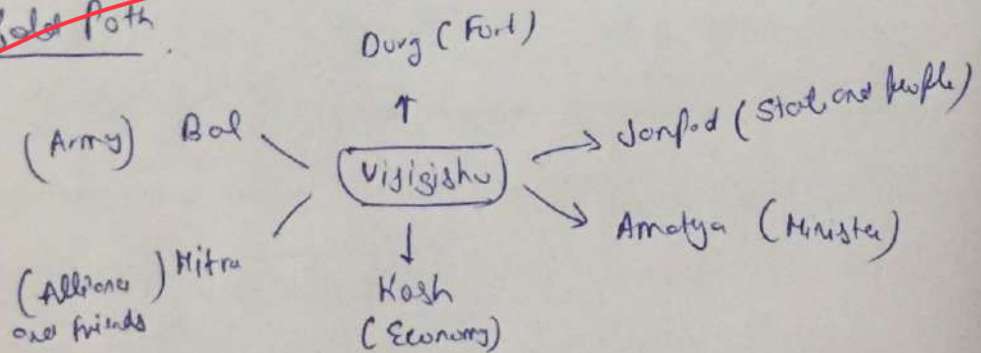 Path
Durg (Fort)
(Army) Bal
Vijigishu
Janpad (State and people)
Amatya (Minister)
(Alliance and friends) Mitra
Kosh
(Economy)